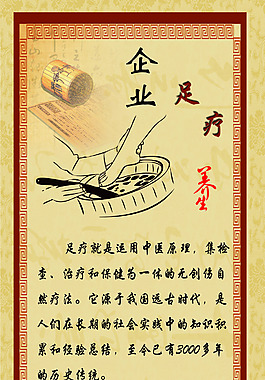 企业
足疗
养生
足疗就是运用中医原理，集检
查、治疗和保健为一体的无创伤自
然疗法。它源于我国远古时代，是
人们在长期的社会实践中的知识积
累和经验总结，至今已有3000多年
的历史传统。